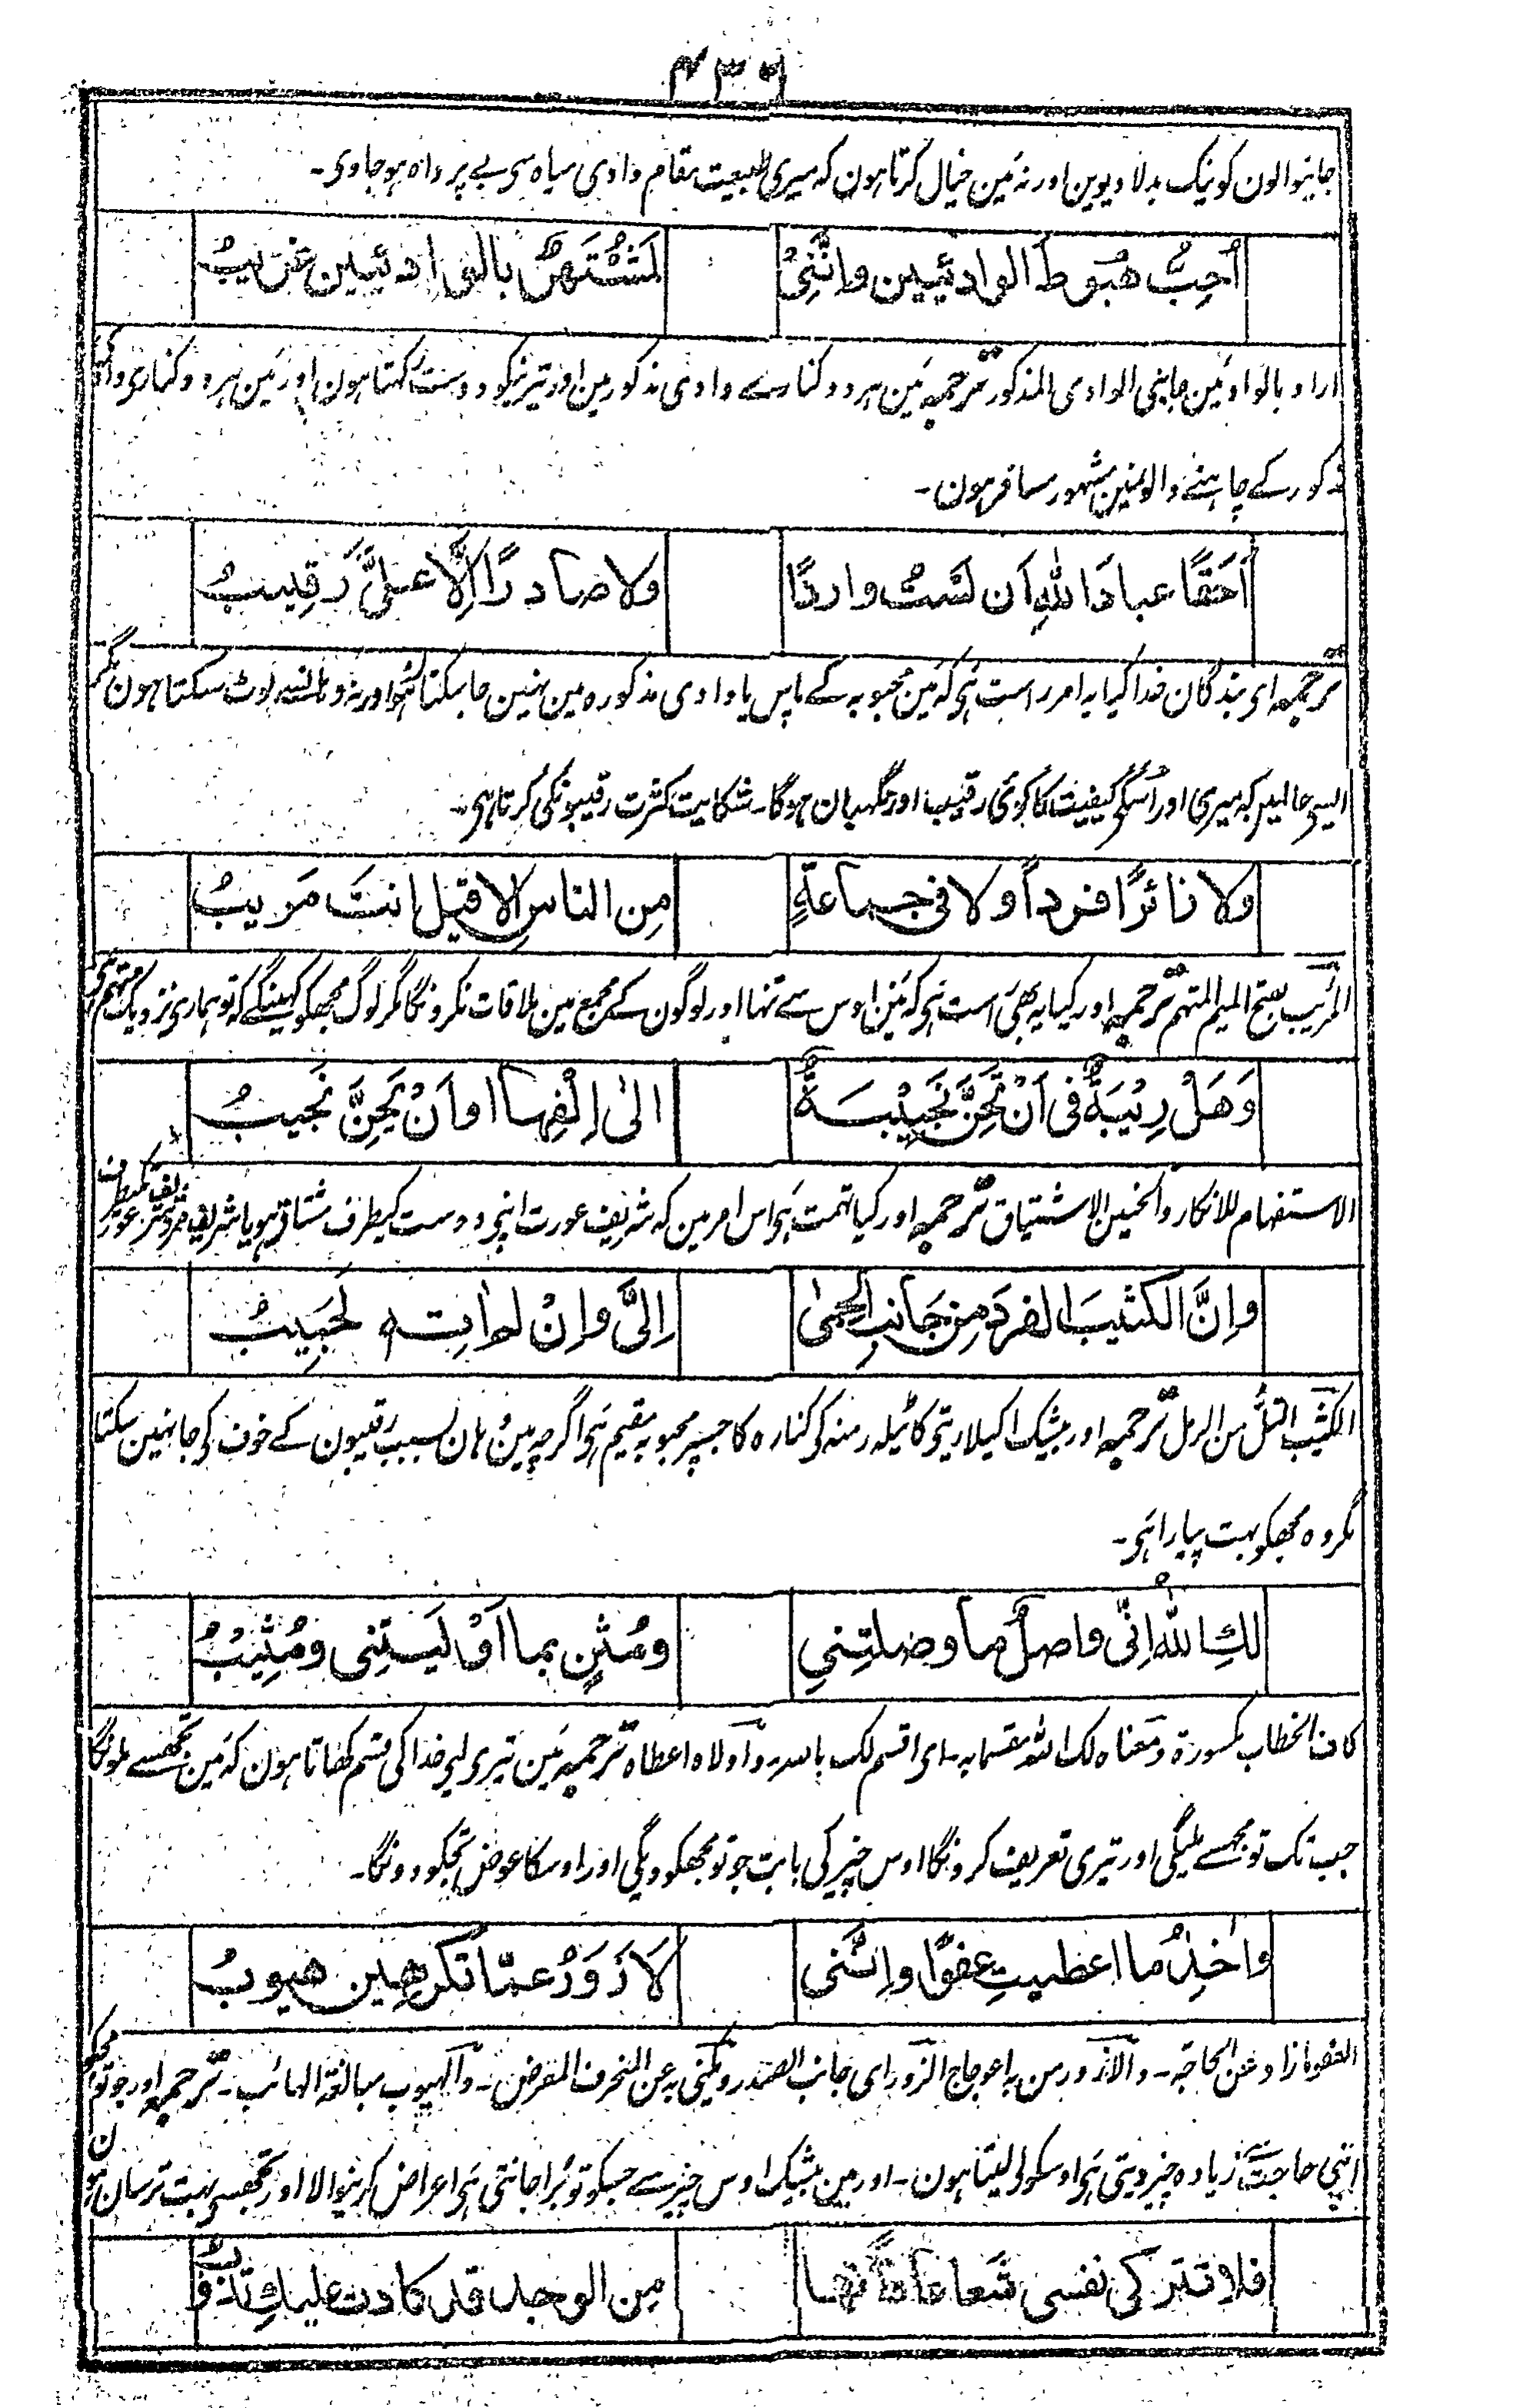 ۴۳۶
جانیوالون کو نیک بدلا دیوین اور نہ مَین خیال کرتا ہون کہ میری طبیعت مقام وادی میاہ سی بے پرواہ ہو جاوی۔
اُحِبُّ هُبُوطَ الوادئيين وانَّنِیْ لَمُشْتَهَرٌ بالوادئيين غريبُ
اراد بالوادئین جانبی الوادی المذکور ترجمہ مَین ہر دو کنارے وادی مذکور مین اوترنیکو دوست رکھتا ہون اور مَین ہر دو کناری وادی
مذکور کے چاہنے والونمین مشہور مسافر ہون۔
اَحَقًّا عبادَ اللهِ اَن لَسْتُ واردًا ولا صادرًا اِلَّا عَلَیَّ رَقِيبُ
ترجمہ ای بندگان خدا کیا یہ امر راست ہَی کہ مَین محبوبہ کے پاس یا وادی مذکورہ مین نہین جا سکتا ہون اور نہ وہانسے لوٹ سکتا ہون مگر
ایسی حالمین کہ میری اور اُسکی کیفیت کا کوئی رقیب اور نگہبان ہوگا۔ شکایت کثرت رقیبونکی کرتا ہی۔
ولا زائرًا فردًا ولا فی جماعةٍ مِن الناسِ الا قيل انتَ مَريبُ
المُریب بفتح المیم المتہم ترجمہ اور کیا یہ بھی راست ہَی کہ مَین اوس سے تنہا اور لوگون کے مجمع مین ملاقات نکرونگا مگر لوگ مجھکو کہینگے کہ تو ہماری نزدیک متہم ہَی
وَهَلْ رِيْبَةٌ فی اَنْ تَحِنَّ نَجِيْبَةٌ الیٰ اِلْفِها او اَنْ يَحِنَّ نَجيبُ
الاستفہام للانکار والحنین الاشتیاق ترجمہ اور کیا تہمت ہَی اس امر مین کہ شریف عورت اپنی دوست کیطرف مشتاق ہو یا شریف مرد شریف عورت کیطرف
واِنَّ الکثیبَ الفردَ مِن جَانِبِ الحِمیٰ اِلیَّ واِنْ لم اٰتِه لَحَبِيبُ
الکثیب التلّ من الرمل ترجمہ اور بیشک اکیلا ریتی کا ٹیلہ رمنہ کی کنارہ کا جسپر محبوبہ مقیم ہَی اگرچہ مین وہان بسبب رقیبون کے خوف کی جا نہین سکتا
مگر وہ مجھکو بہت پیارا ہَی۔
لكِ اللّٰهُ اِنّی واصلٌ ما وصلتِنی ومُثنٍ بما اَوْلَيتِنی ومُثِيْبُ
کاف الخطاب مکسورة ومعناہ لک اللہ مقسما بہ۔ ای اقسم لک باللہ۔ واولاہ اعطاہ ترجمہ مَین تیری لیی خدا کی قسم کھاتا ہون کہ مَین تجھسے ملونگا
جب تک تو مجہسے ملیگی اور تیری تعریف کرونگا اوس چیز کی بابت جو تو مجھکو دیگی اور اوسکا عوض تجکو دونگا۔
واٰخِذٌ ما اعطيتِ عفوًا واِنَّنی لَاَزْوَرُ عمّا تکرهين هيوبُ
العفو ما زاد عن الحاجة۔ والازور من بہ اعوجاج الزور ای جانب الصدر ویکنی بہ عن المنحرف المعرض۔ والہیوب مبالغة الہائب۔ ترجمہ اور جو تو مجھکو
اپنی حاجت سے زیادہ چیز دیتی ہَی اوسکو لی لیتا ہون۔ اور مین بیشک اوس چیز سے جسکو تو بُرا جانتی ہَی اعراض کرنیوالا اور تجھسی بہت ترسان ہون
فلا تترکی نفسی شَعاعًا فانَّها مِن الوجد قد کادت عليكِ تذوبُ